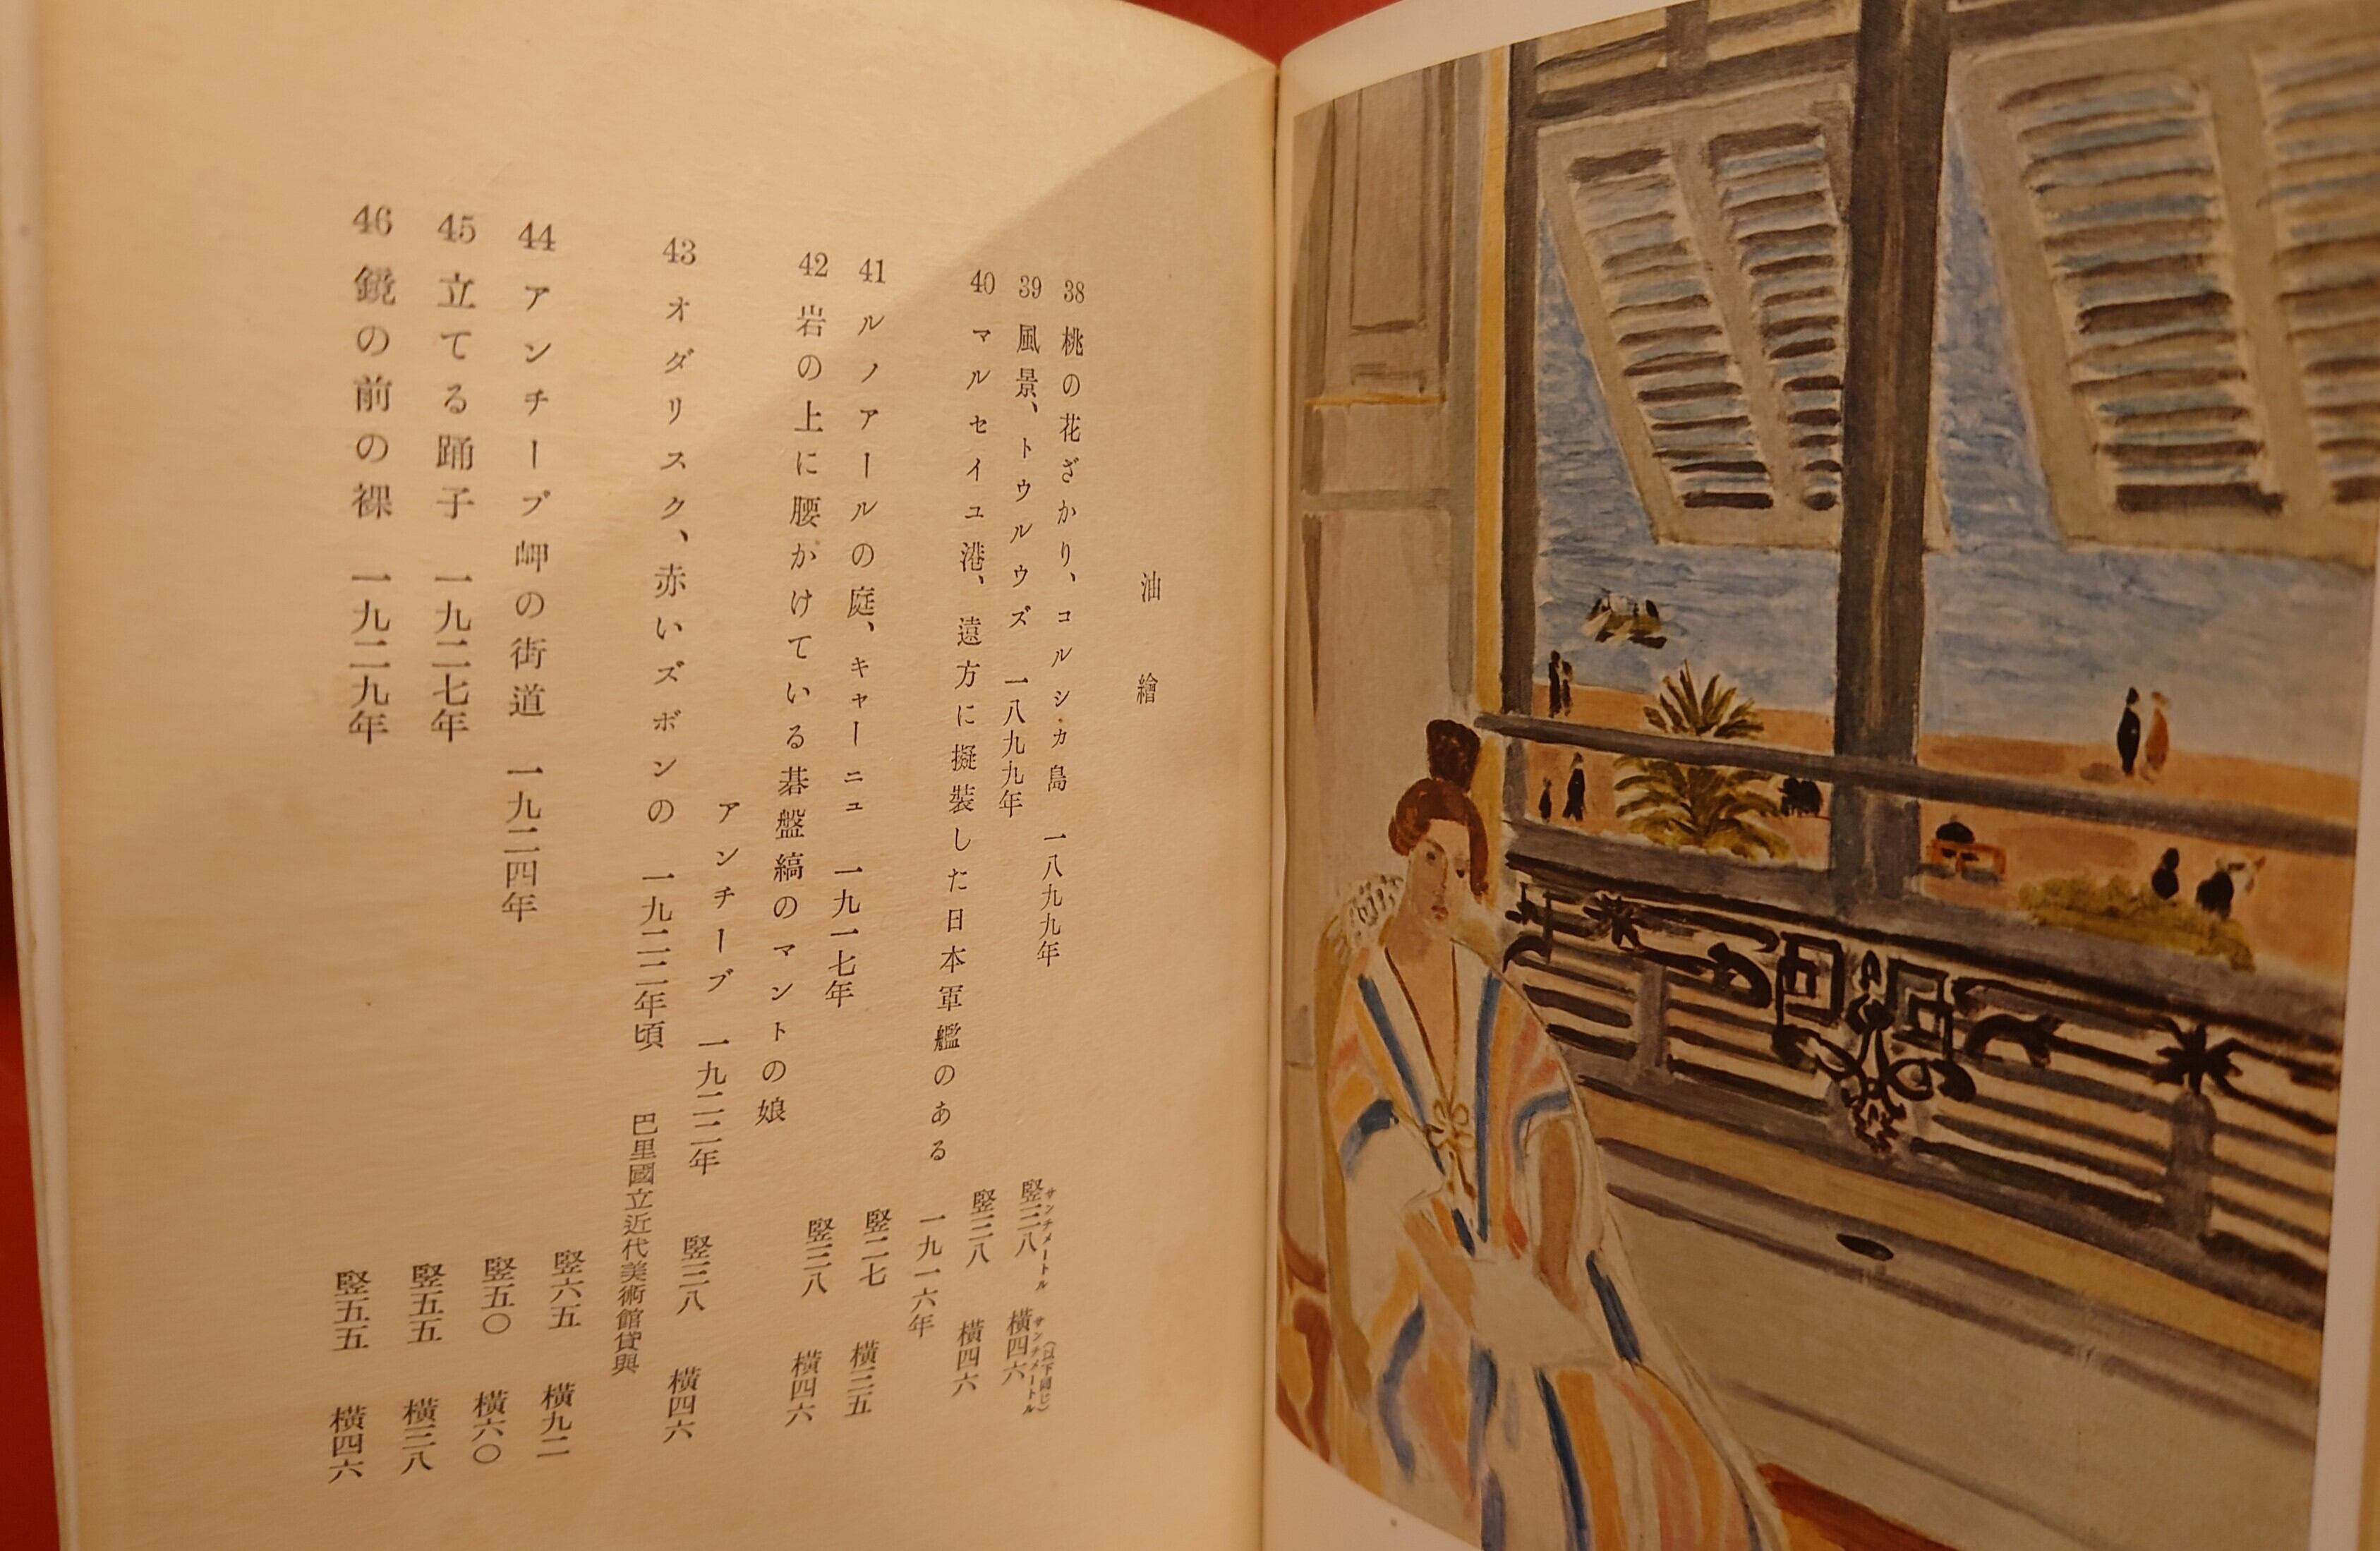 油繪
38 桃の花ざかり、コルシカ島 一八九九年 竪三八サンチメートル 横四六サンチメートル（以下同じ）
39 風景、トウルウズ 一八九九年 竪三八 横四六
40 マルセイユ港、遠方に擬装した日本軍艦のある
一九一六年
竪二七 横三五
41 ルノアールの庭、キャーニュ 一九一七年 竪三八 横四六
42 岩の上に腰かけている碁盤縞のマントの娘
アンチーブ 一九二二年 竪三八 横四六
43 オダリスク、赤いズボンの 一九二二年頃 巴里國立近代美術館貸與
竪六五 横九二
44 アンチーブ岬の街道 一九二四年 竪五〇 横六〇
45 立てる踊子 一九二七年 竪五五 横三八
46 鏡の前の裸 一九二九年 竪五五 横四六